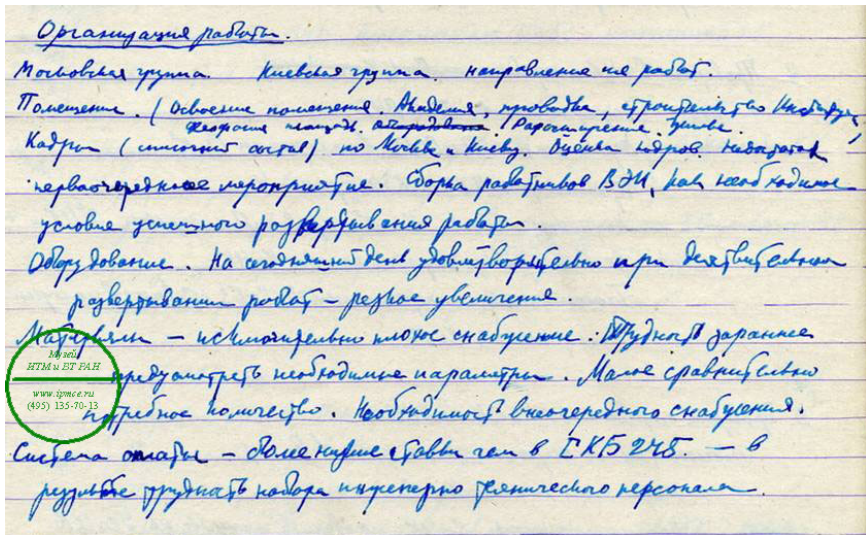 Организация работы.
Московская группа. Киевская группа. направление их работ.
Помещение. (Освоение помещения, Академия, проводка, строительство Института,
площадь. оборудование. Расширение.
Кадры (списочный состав) по Москве и Киеву. Оценка кадров. недостаток
первоочередное мероприятие. Сборка работников ВЭИ, как необходимое
условие успешного развертывания работы.
Оборудование. На сегодняшний день удовлетворительно при действительном
развертывании работ – резкое увеличение.
Материалы – исключительно плохое снабжение. Трудность заранее
предусмотреть необходимые параметры. Малое сравнительно
потребное количество. Необходимость внеочередного снабжения.
Система оплаты – более низкие ставки чем в СКБ 245. – в
результате трудность набора инженерно технического персонала.
Музей
ИТМ и ВТ РАН
www.ipmce.ru
(495) 135-70-13